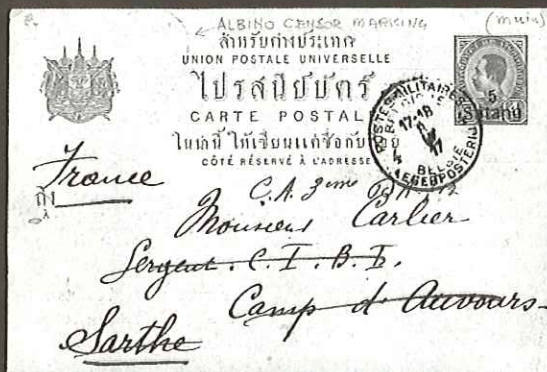 ALBINO CENSOR MARKING
สำหรับต่างประเทศ
UNION POSTALE UNIVERSELLE
ไปรสนียบัตร์
CARTE POSTALE
ในน่านี้ ให้เขียนแต่ชื่อกับ
CÔTÉ RÉSERVÉ À L'ADRESSE
5
Satang
POSTES MILITAIRES
17-18
17
BELGIE
LEGERPOSTERIJ
France
ถึง
C.A. 3eme
Monsieur Carlier
Sergent. C. I. B. I.
Camp d'Auvours
Sarthe